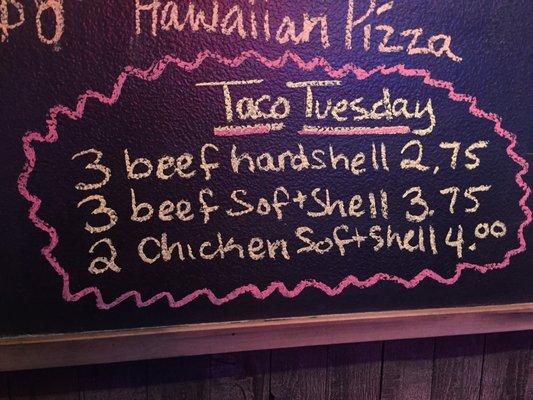 Hawaiian Pizza
Taco Tuesday
3 beef hardshell 2.75
3 beef Soft Shell 3.75
2 Chicken Soft Shell 4.00